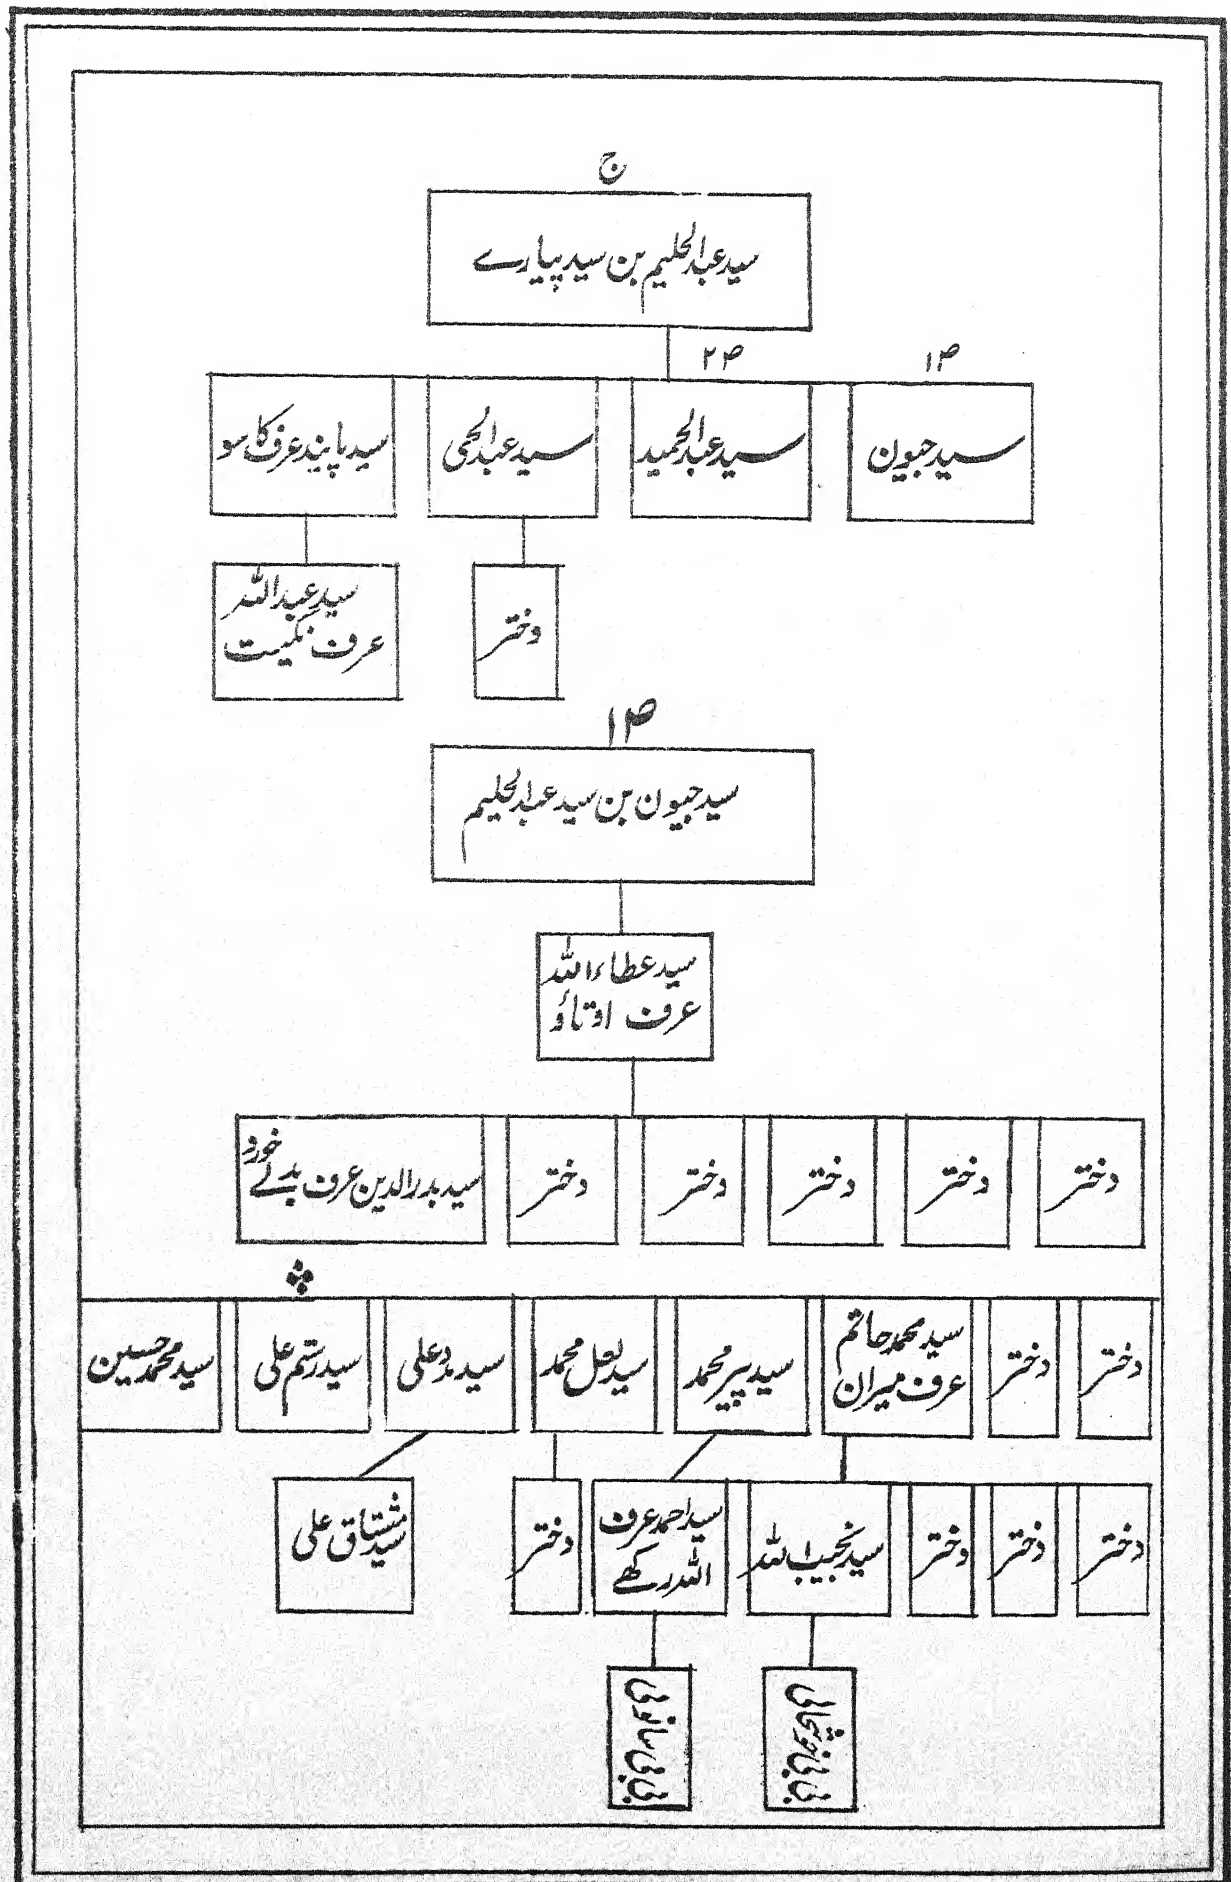 ج
سید عبدالحلیم بن سید پیارے
ص۱
ص۲
سید جیون
سید عبدالحمید
سید عبدالحی
سید پایندہ عرف کاسو
دختر
سید عبداللہ
عرف
ص۱
سید جیون بن سید عبدالحلیم
سید عطاءاللہ
عرف اوتاؤ
دختر
دختر
دختر
دختر
دختر
سید بدرالدین عرف بدلے خورد
دختر
دختر
سید محمد حاتم
عرف میران
سید پیر محمد
سید لعل محمد
سید مدد علی
سید رستم علی
سید محمد حسین
دختر
دختر
دختر
سید نجیب اللہ
سید احمد عرف
اللہ رکھے
دختر
سید مشتاق علی
بی بی
بی بی